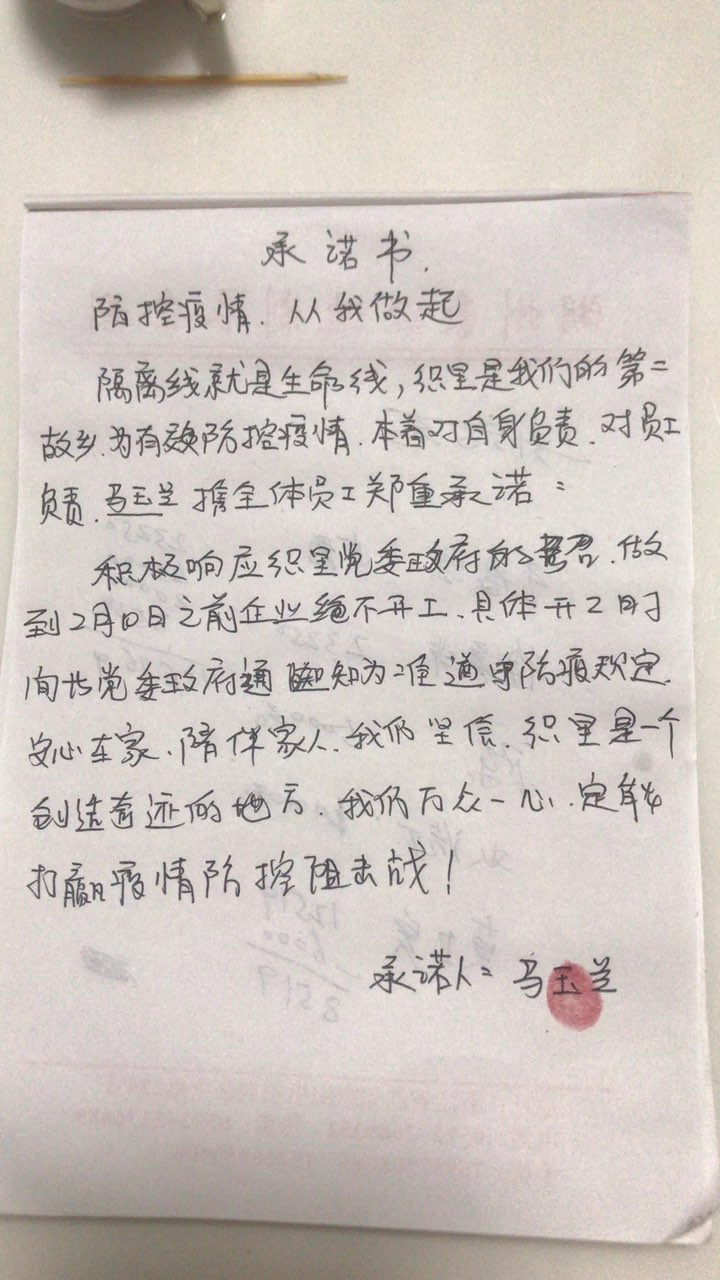 承诺书.
防控疫情.从我做起
隔离线就是生命线,织里是我们的第二
故乡.为有效防控疫情.本着对自身负责.对员工
负责.马玉兰携全体员工郑重承诺:
积极响应织里党委政府的号召.做
到2月10日之前企业绝不开工.具体开工时
间以党委政府通知为准遵守防疫规定.
安心在家.陪伴家人.我们坚信.织里是一个
创造奇迹的地方.我们万众一心.定能
打赢疫情防控阻击战!
承诺人:马玉兰